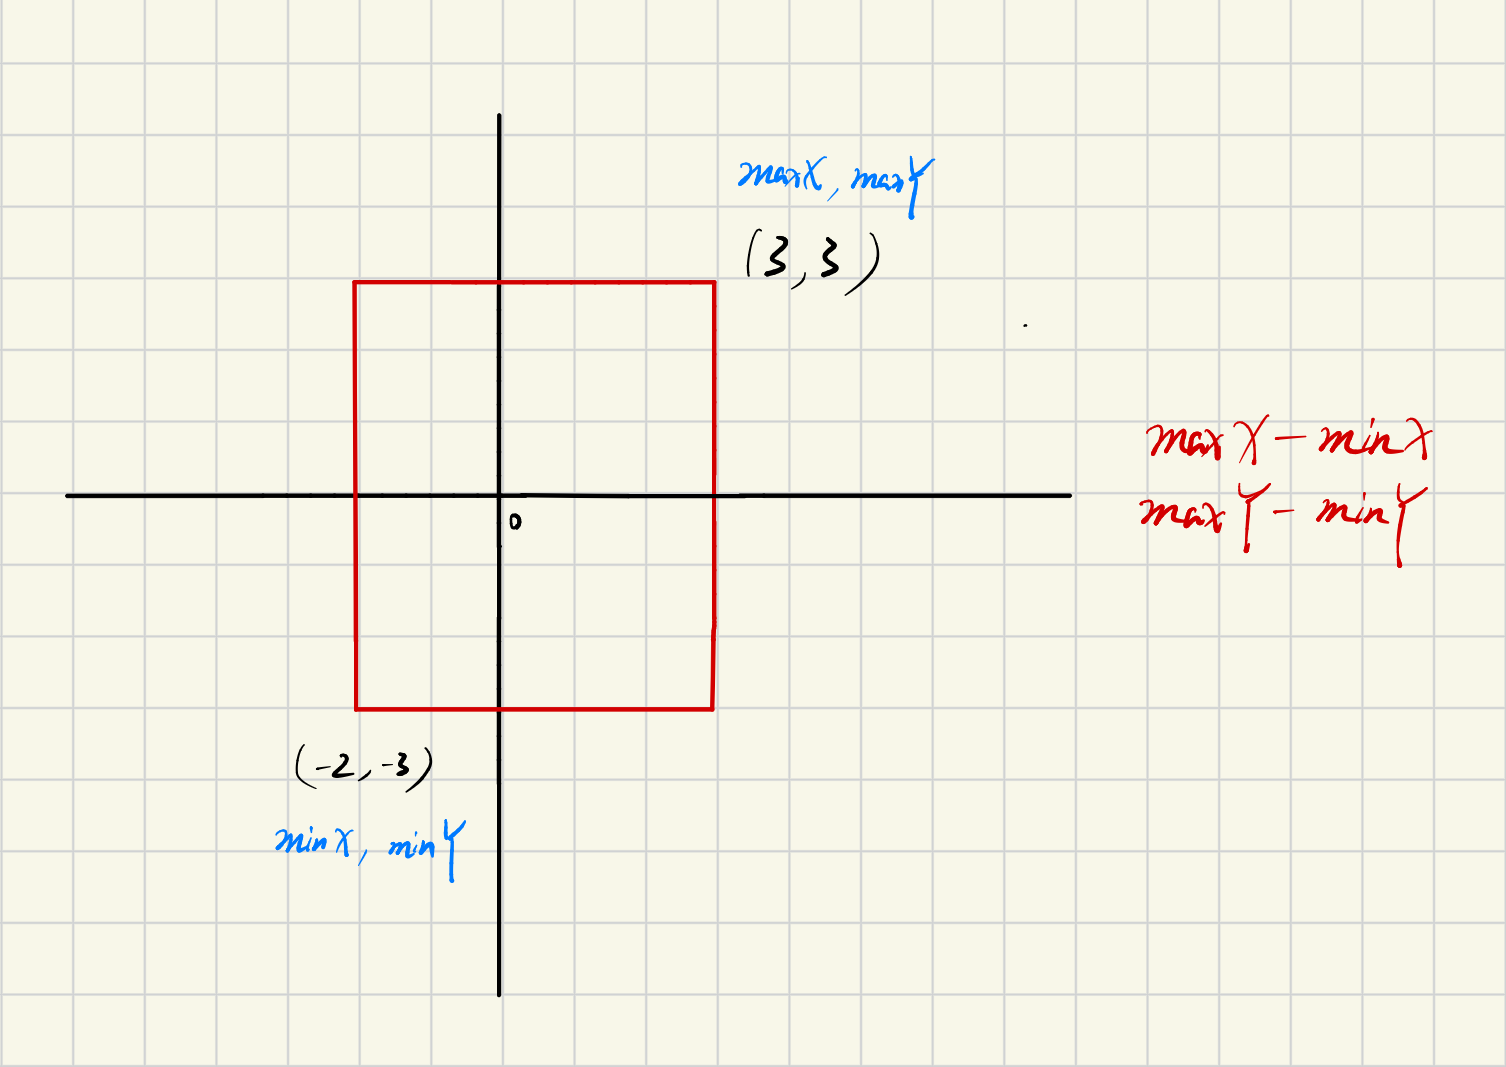 maxX, maxY
(3, 3)
maxX - minX
maxY - minY
0
(-2, -3)
minX, minY